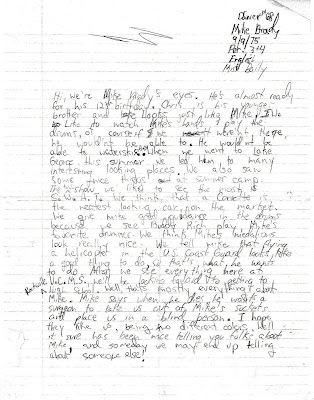 Mike Brady
9/9/75
Per. 3+4
English
Hi, we're Mike Brady's eyes. He's almost ready
for his 12th birthday. Chris is his younger
brother and looks just like Mike. We
like to watch Mike's hands play the
drums, of course if we weren't there,
he wouldn't be able to. He wouldn't be
able to waterski. When we went to Lake
George this summer we led him to many
interesting looking places. We also saw
some nice things at summer camp.
The show we like to see the most is
S.W.A.T. We think that a Corvette is
the neatest looking car on the market.
We give Mike good guidance in the drums
because we see Buddy Rich play, Mike's
favorite drummer. We think Mike's
look really nice. We tell Mike that flying
a helicopter in the U.S. Coast Guard looks like
a good thing to do so that's what he wants
to do. After we see everything here at
we'll be looking forward to getting to
high school. Well, that's mostly everything about
Mike. Mike says when he dies he wants a
surgeon to take us out of Mike's sockets
and place us in a blind person. I hope
they like us, being two different colors. Well
it sure has been nice telling you folks about
Mike and someday we may end up telling
about someone else!